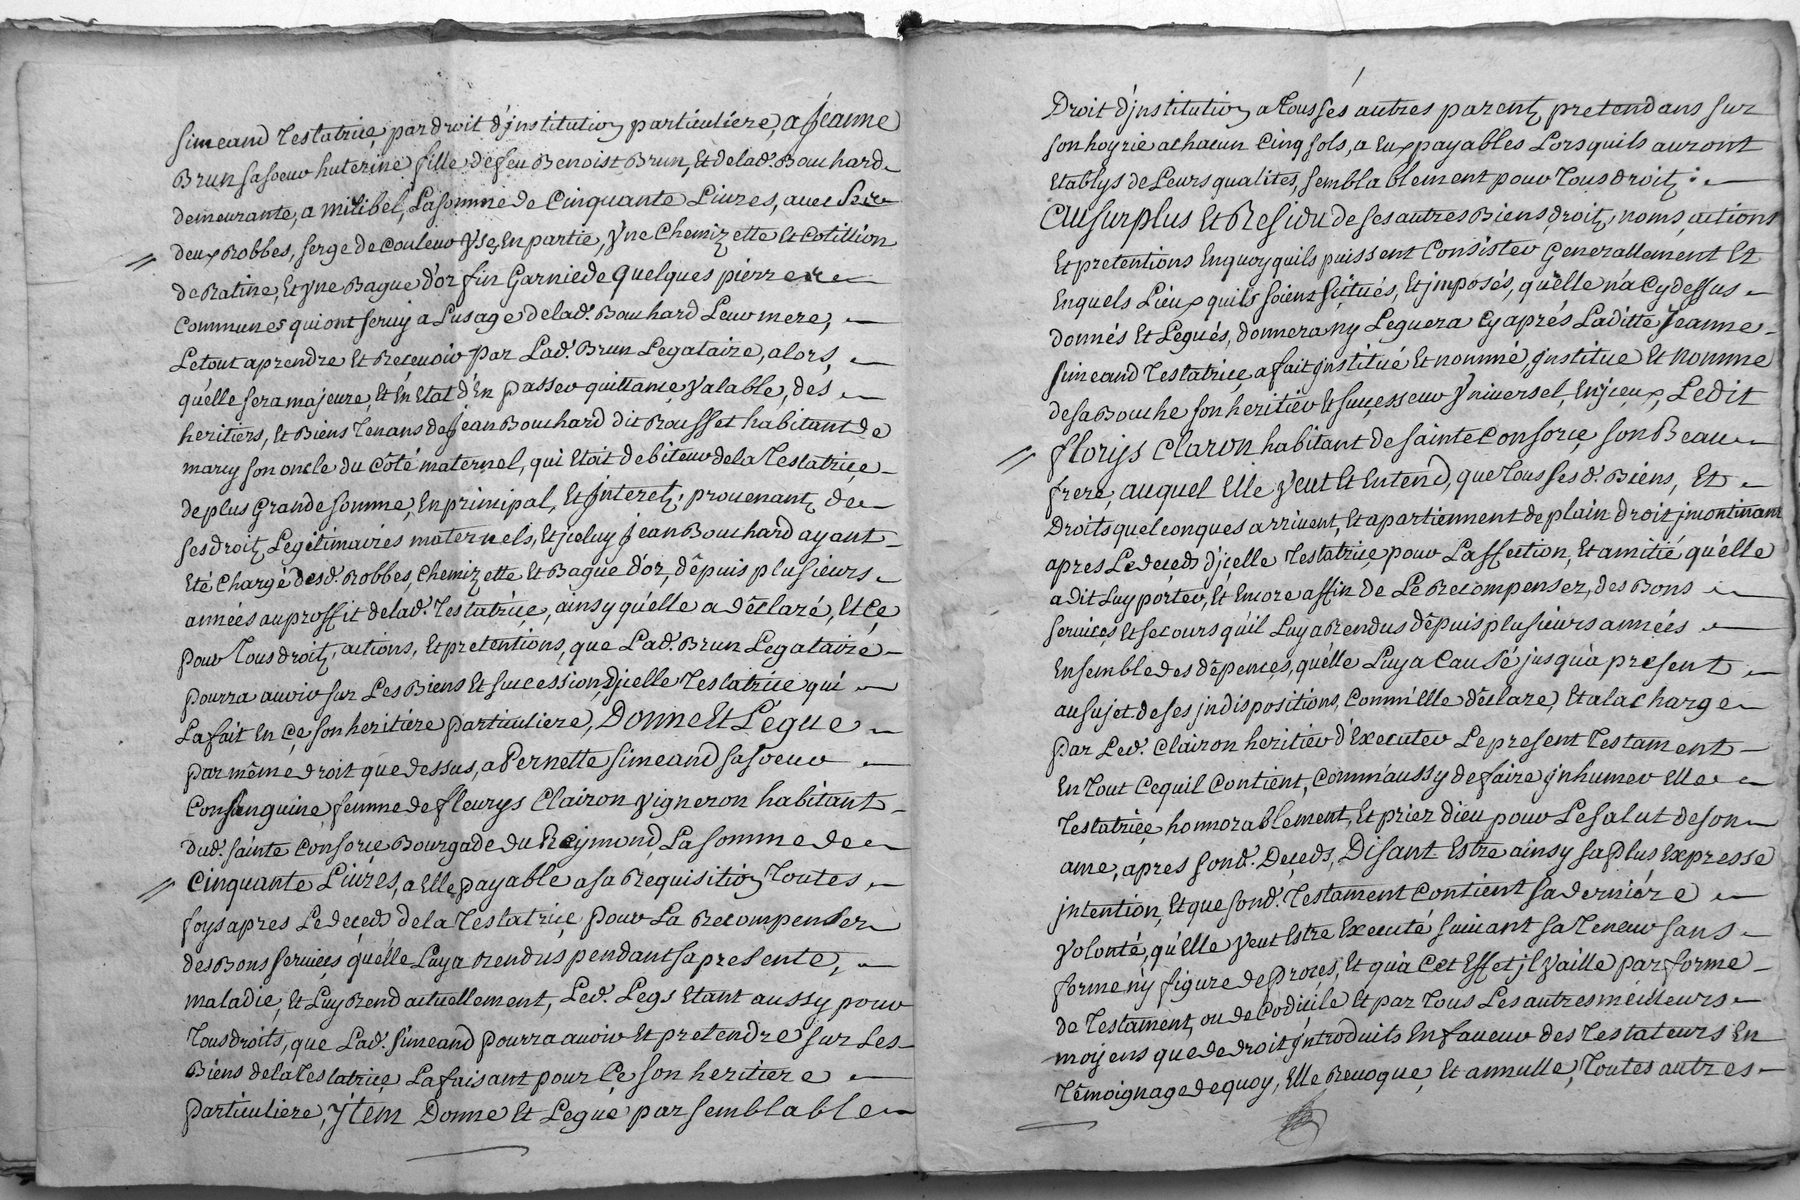 Simeand Testatrice, par droit d'jnstitution particuliere, a Jeanne
Brun sa soeur huterine fille de feu Benoist Brun, Et de lad. Bouchard
demeurante, a Miribel, La somme de Cinquante Livres, avec
deux Robbes, serge de couleur Vse, En partie, Vne Chemizette Et Cotillion
de Ratine, Et Vne Bague d'or fin Garnie de quelques pierre
Communes qui ont servy a L'usage de lad. Bouchard Leur mere,
Le tout a prendre Et Recevoir par Lad. Brun Legataire, alors,
qu'elle sera majeure, Et En Etat d'En passer quittance Valable, des
heritiers, Et Biens Tenans de Jean Bouchard dit Rousset habitant de
marcy son oncle du Côté maternel, qui Etoit debiteur de la Testatrice
de plus Grande somme, En principal, Et Jnterets, provenant de
ses droits Legitimaires maternels, Et jceluy Jean Bouchard ayant
Eté Chargé desd. Robbes, Chemizette Et Bague d'or, dêpuis plusieurs
années au proffit de lad. Testatrice, ainsy qu'elle a dêclaré, Et Ce
pour Tous droits, actions, Et pretentions, que Lad. Brun Legataire
pourra avoir sur Les Biens Et succession d'jcelle Testatrice qui
La fait En Ce son heritiere particuliere, Donne Et Legue
par même droit que dessus, a Pernette Simeand sa soeur
Consanguine, femme de fleurys Clairon Vigneron habitant
dud. sainte Consorce Bourgade du Reymond, La somme de
Cinquante Livres, a Elle payable a sa Requisition Toutes
foys apres Le deceds de la Testatrice pour La Recompenser
des Bons services qu'elle Luy a Rendus pendant sa presente,
maladie, Et Luy Rend actuellement, Led. Legs Etant aussy pour
Tous droits, que Lad. Simeand pourra avoir Et pretendre sur Les
Biens de la Testatrice La faisant pour Ce son heritiere
particuliere, Jtem Donne Et Legue par semblable
Droit d'jnstitution a Tous sés autres parents pretendans sur
son hoyrie a chacun Cinq sols, a Eux payables Lors quils auront
Etablys de Leurs qualités, semblablement pour Tous droits :
Au surplus Et Residu de ses autres Biens, droits, noms, actions
Et pretentions En quoy quils puissent Consister Generallement Et
En quels Lieux quils soient scitués, Et jmposés, qu'elle n'a Cy dessus
donnés Et Legués, donnera ny Leguera Cy aprés Laditte Jeanne
Simeand Testatrice a fait jnstitué Et nommé, jnstitue Et nomme
de sa Bouche son heritier Et successeur Vniversel, En jceux, Ledit
florys Claron habitant de sainte Consorce son Beau
frere, auquel Elle Veut Et Entend, que Tous ses d. Biens, Et
Droits quelconques arrivent, Et apartiennent de plain droit jncontinant
apres Le deceds d'jcelle Testatrice pour L'affection, Et amitié qu'elle
a dit Luy porter, Et Encore affin de Le Recompenser, des Bons
services, Et secours qu'il Luy a Rendus dêpuis plusieurs années
Ensemble des dêpences, qu'elle Luy a Causé jusqu'à present
au sujet de ses jndispositions, Comm'Elle dêclare, Et a la charge
par Led. Clairon heritier d'Executer Le present Testament
En Tout Ce quil Contient, Comm'aussy de faire jnhumer Elle
Testatrice honnorablement, Et prier dieu pour Le salut de son
ame, apres sond. Deceds, Disant Estre ainsy sa plus Expresse
jntention, Et que sond. Testament Contient sa derniére
Volonté, qu'Elle Veut Estre Executé suivant sa Teneur sans
forme n'y figure de Procés, Et qu'a Cet Effet jl Vaille par forme
de Testament, ou de Codicile Et par Tous Les autres meilleurs
moyens que de droit jntroduits En faveur des Testateurs En
Têmoignage de quoy, Elle Revoque, Et annulle, Toutes autres